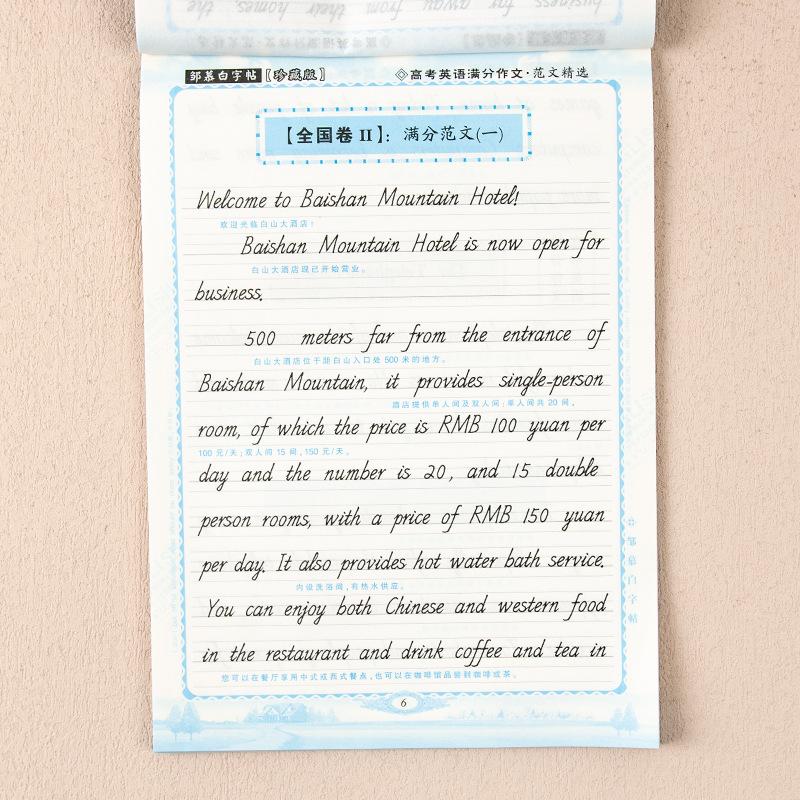 business far away from their homes, the
邹慕白字帖【珍藏版】 ◇高考英语满分作文·范文精选
【全国卷 II】：满分范文(一)
Welcome to Baishan Mountain Hotel!
欢迎光临白山大酒店！
Baishan Mountain Hotel is now open for
白山大酒店现已开始营业。
business.
500 meters far from the entrance of
白山大酒店位于距白山入口处 500 米的地方。
Baishan Mountain, it provides single-person
酒店提供单人间及双人间；单人间共 20 间，
room, of which the price is RMB 100 yuan per
100 元/天；双人间 15 间，150 元/天。
day and the number is 20, and 15 double
person rooms, with a price of RMB 150 yuan
per day. It also provides hot water bath service.
内设洗浴间，有热水供应。
You can enjoy both Chinese and western food
in the restaurant and drink coffee and tea in
您可以在餐厅享用中式或西式餐点，也可以在咖啡馆品尝到咖啡或茶。
6
邹慕白字帖